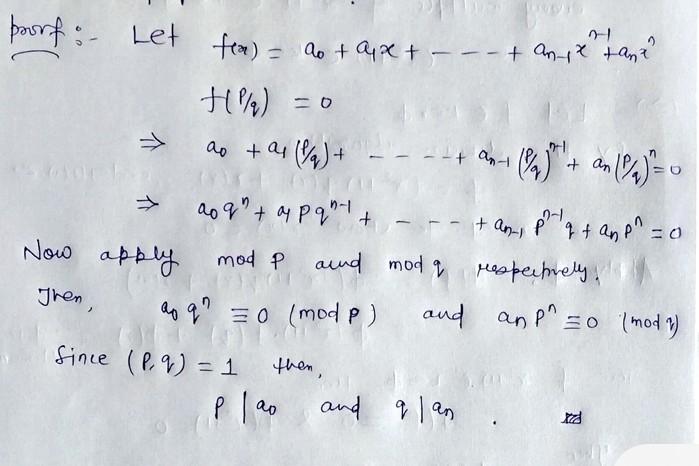 proof :- Let f(x) = a₀ + a₁x + ----- + aₙ₋₁xⁿ⁻¹ + aₙxⁿ
f(P/q) = 0
⇒ a₀ + a₁(P/q) + ----- + aₙ₋₁(P/q)ⁿ⁻¹ + aₙ(P/q)ⁿ = 0
⇒ a₀qⁿ + a₁pqⁿ⁻¹ + ---- + aₙ₋₁pⁿ⁻¹q + aₙpⁿ = 0
Now apply mod p and mod q respectively.
Then, a₀qⁿ ≡ 0 (mod p) and aₙpⁿ ≡ 0 (mod q)
Since (p, q) = 1 then,
p | a₀ and q | aₙ .